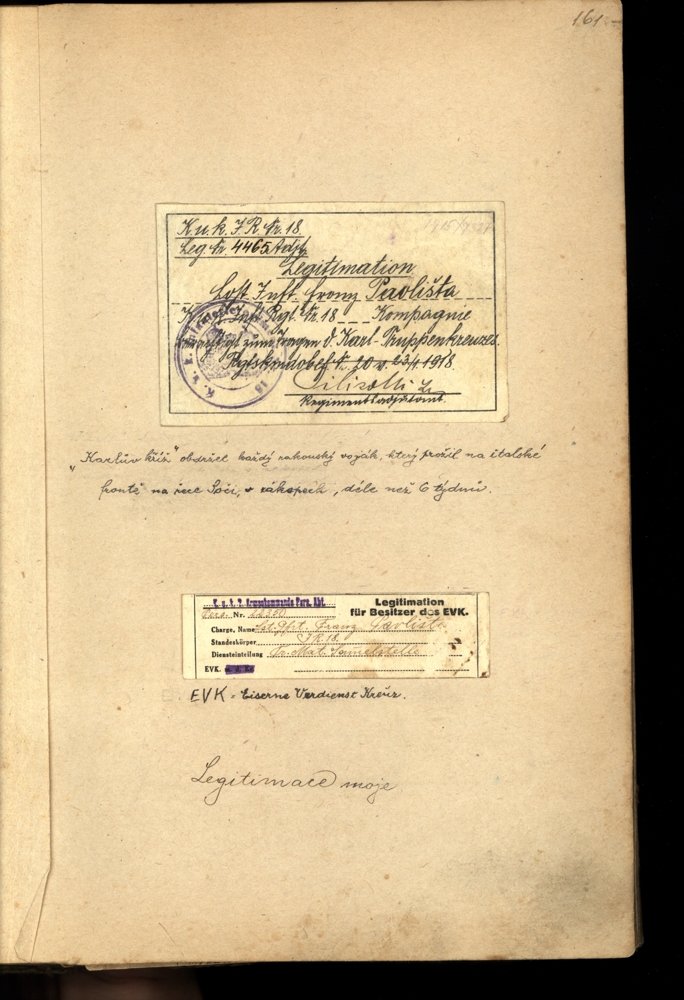 161
K.u.k. I.R. Nr. 18
Leg. Nr. 4465 Adjt.
Legitimation
Lost. Inft. Franz Pavlišta
Inft. Rgt. Nr. 18 Kompagnie
zum Tragen d. Karl-Truppenkreuzes.
Rgtskmdobef. Nr. 20 v. 23/1. 1918.
Regimentsadjutant.
„Karlův kříž" obdržel každý rakouský voják, který prožil na italské
frontě na řece Soči, v zákopech, déle než 6 týdnů.
K. u. k. 2. Armeekommando Pers. Abt.
Legitimation
für Besitzer des EVK.
Pers. Nr.
Charge, Name Lst. Gft. Franz Pavlišta
Standeskörper IR 18
Diensteinteilung
EVK.
EVK = Eiserne Verdienst Kreuz.
Legitimace moje